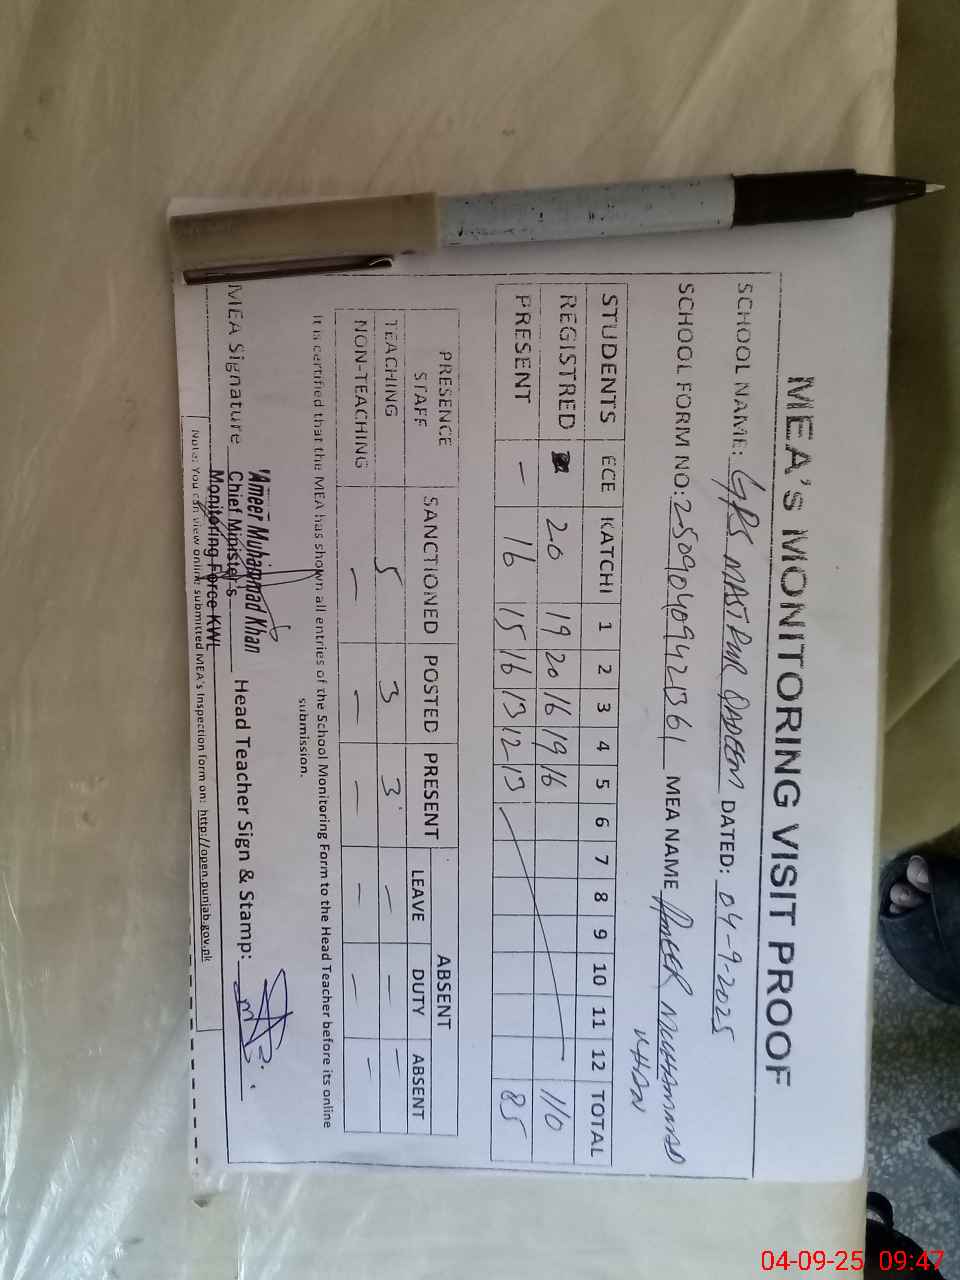 MEA's MONITORING VISIT PROOF
SCHOOL NAME: GPS MAST PUR QADEEM DATED: 04-9-2025
SCHOOL FORM NO: MEA NAME AMEER MUHAMMAD KHAN
STUDENTS ECE KATCHI 1 2 3 4 5 6 7 8 9 10 11 12 TOTAL
REGISTRED 20 19 20 16 19 16 110
PRESENT – 16 15 16 13 12 13 85
PRESENCE STAFF SANCTIONED POSTED PRESENT ABSENT
LEAVE DUTY ABSENT
TEACHING 5 3 3 – – –
NON-TEACHING – – – – – –
It is certified that the MEA has shown all entries of the School Monitoring Form to the Head Teacher before its online
submission.
MEA Signature Head Teacher Sign & Stamp:
Ameer Muhammad Khan
Chief Minister's
Monitoring Force KWL
Note: You can view online submitted MEA's Inspection form on: http://open.punjab.gov.pk
04-09-25 09:47